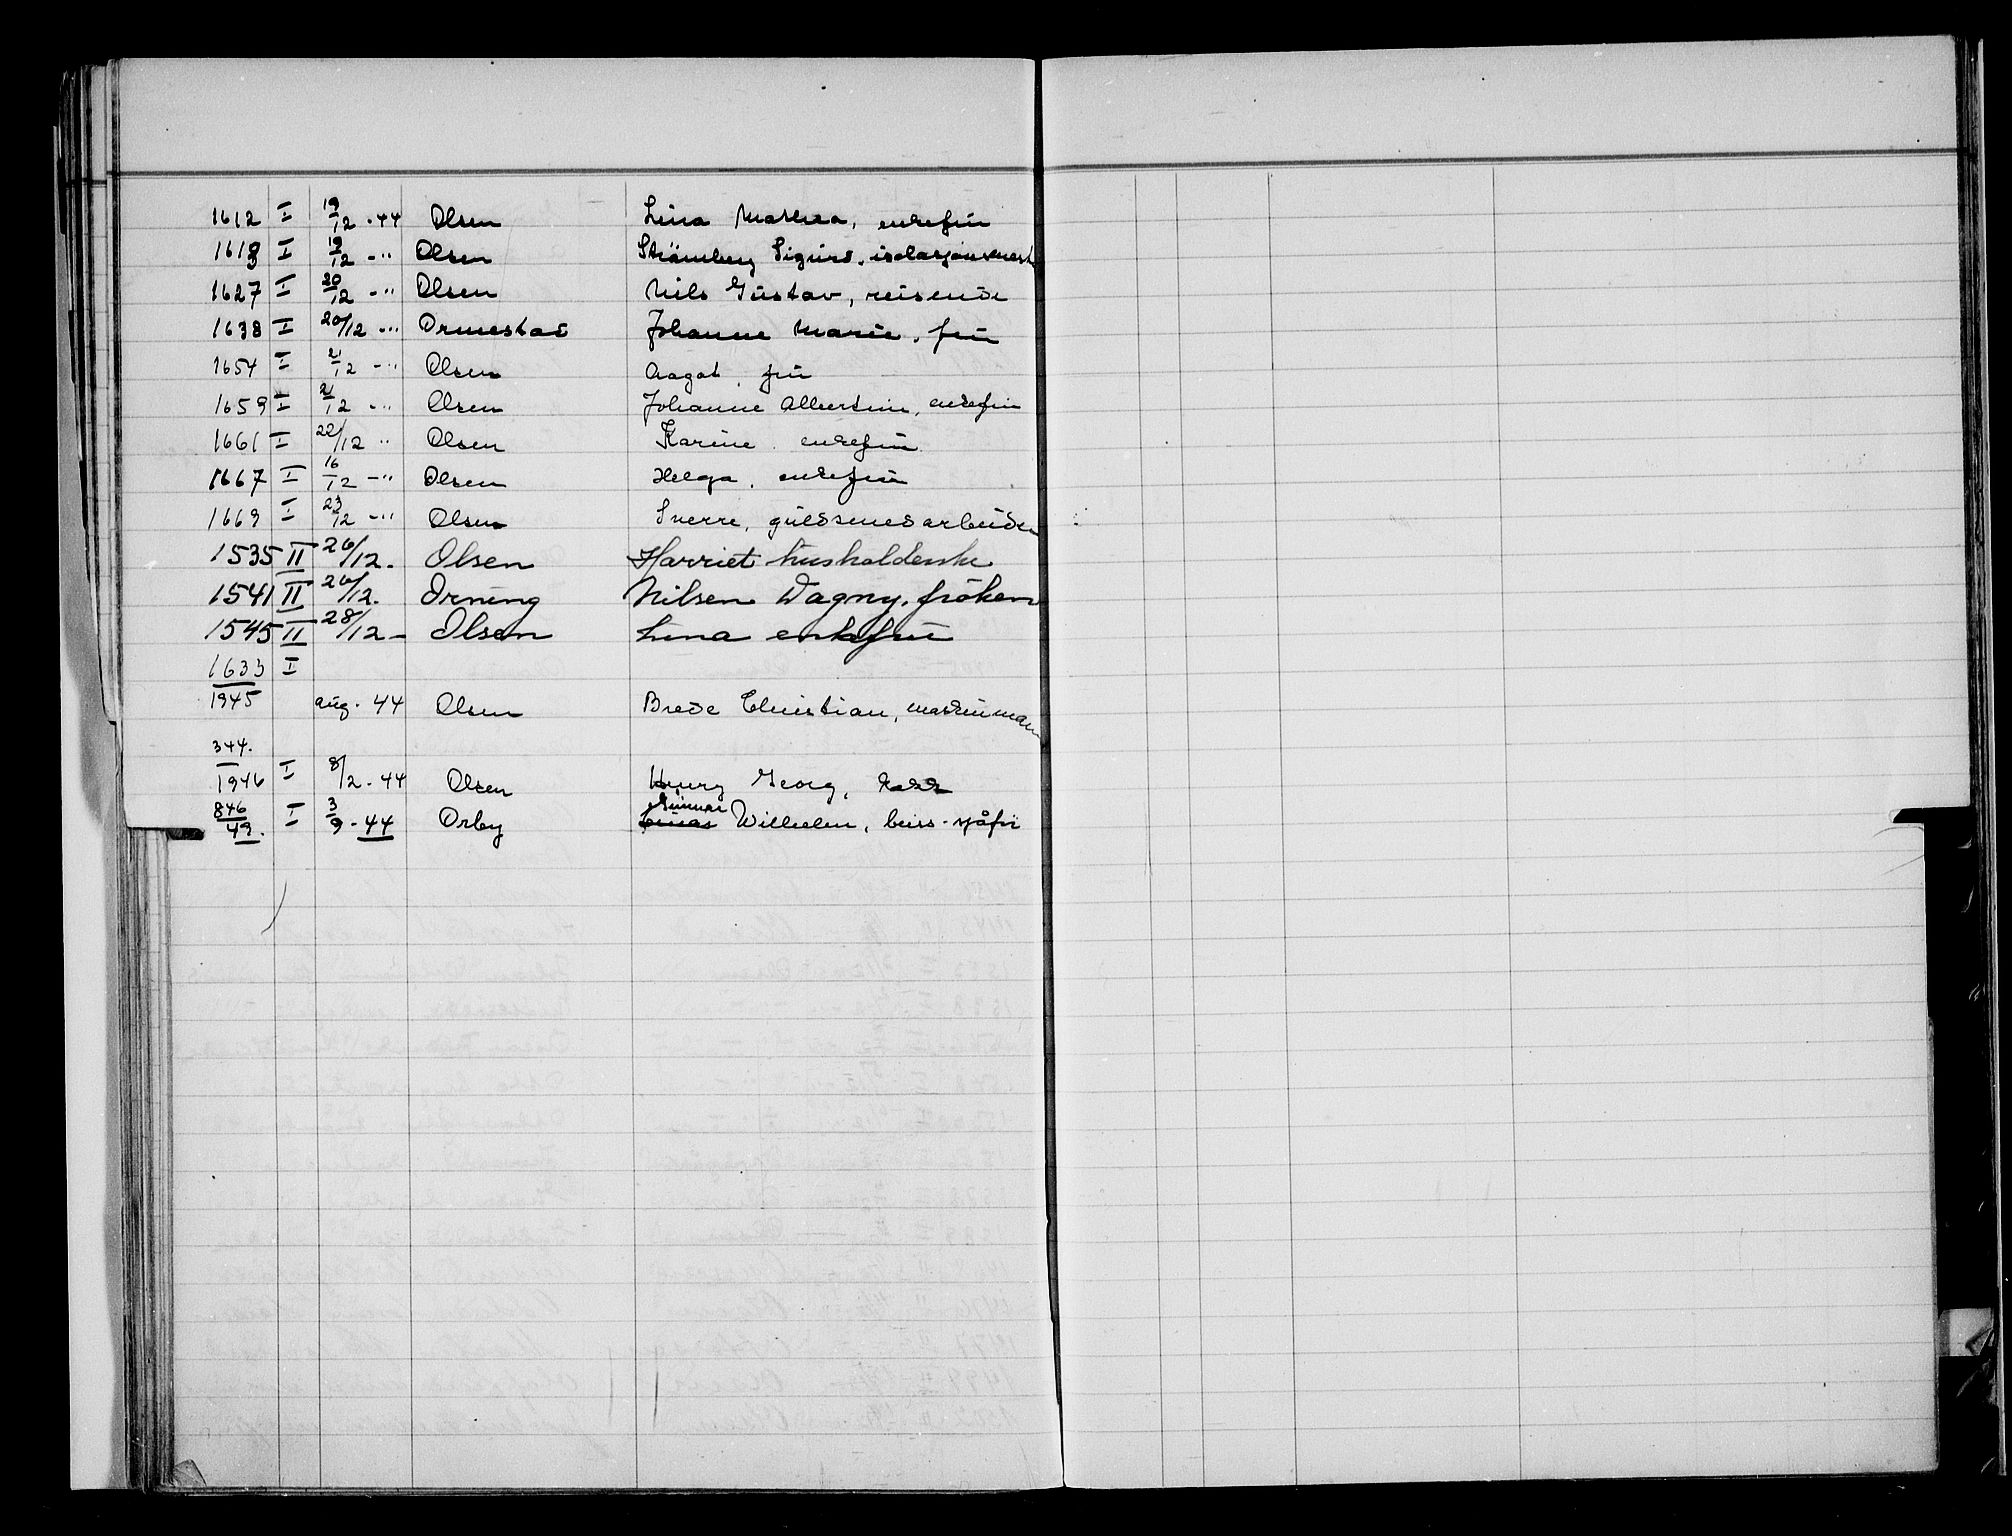 1612 I 19/12 - 44 Olsen Lina Mathea, enkefru
1613 I 19/12 - " Olsen Strömberg Sigurd, isolasjonsmest
1627 I 20/12 - " Olsen Nils Gustav, reisende
1638 I 20/12 - " Ormestad Johanne Marie, fru
1654 I 21/12 - " Olsen Aagot, fru
1659 I 21/12 - " Olsen Johanne Albertine, enkefru
1661 I 22/12 " Olsen Karine, enkefru
1667 I 16/12 - " Olsen Helga, enkefru
1669 I 23/12 - " Olsen Sverre, gullsmedarbeider
1535 II 26/12. Olsen Harriet husholderske
1541 II 26/12. Orning Nilsen Dagny, fröken
1545 II 28/12 - Olsen Lina enkefru
1633 I
1945 aug. 44 Olsen Brede Christian, maskinmann
344.
1946 I 8/2 - 44 Olsen Henry Georg,
846/49. I 3/9 - 44 Orby Gunnar Wilhelm, buss-sjåfør